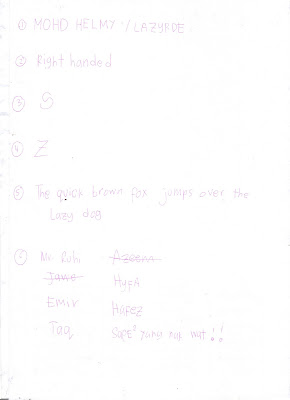 ① MOHD HELMY / LAZYRDE
② Right handed
③ S
④ Z
⑤ The quick brown fox jumps over the
lazy dog
⑥ Mr. Ruhi Azeem
Jane HyFA
Emir Hafez
Taq SapE² yang nak nat !!